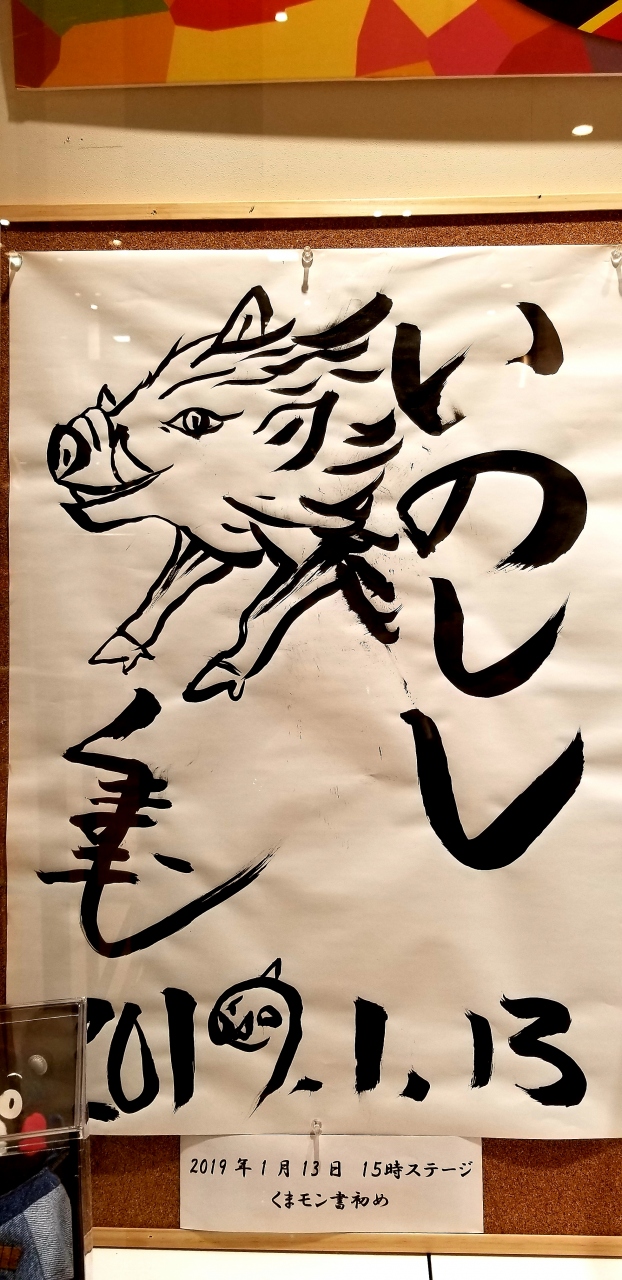 いのしし
くまモン
2019.1.13
2019年1月13日 15時ステージ
くまモン書初め